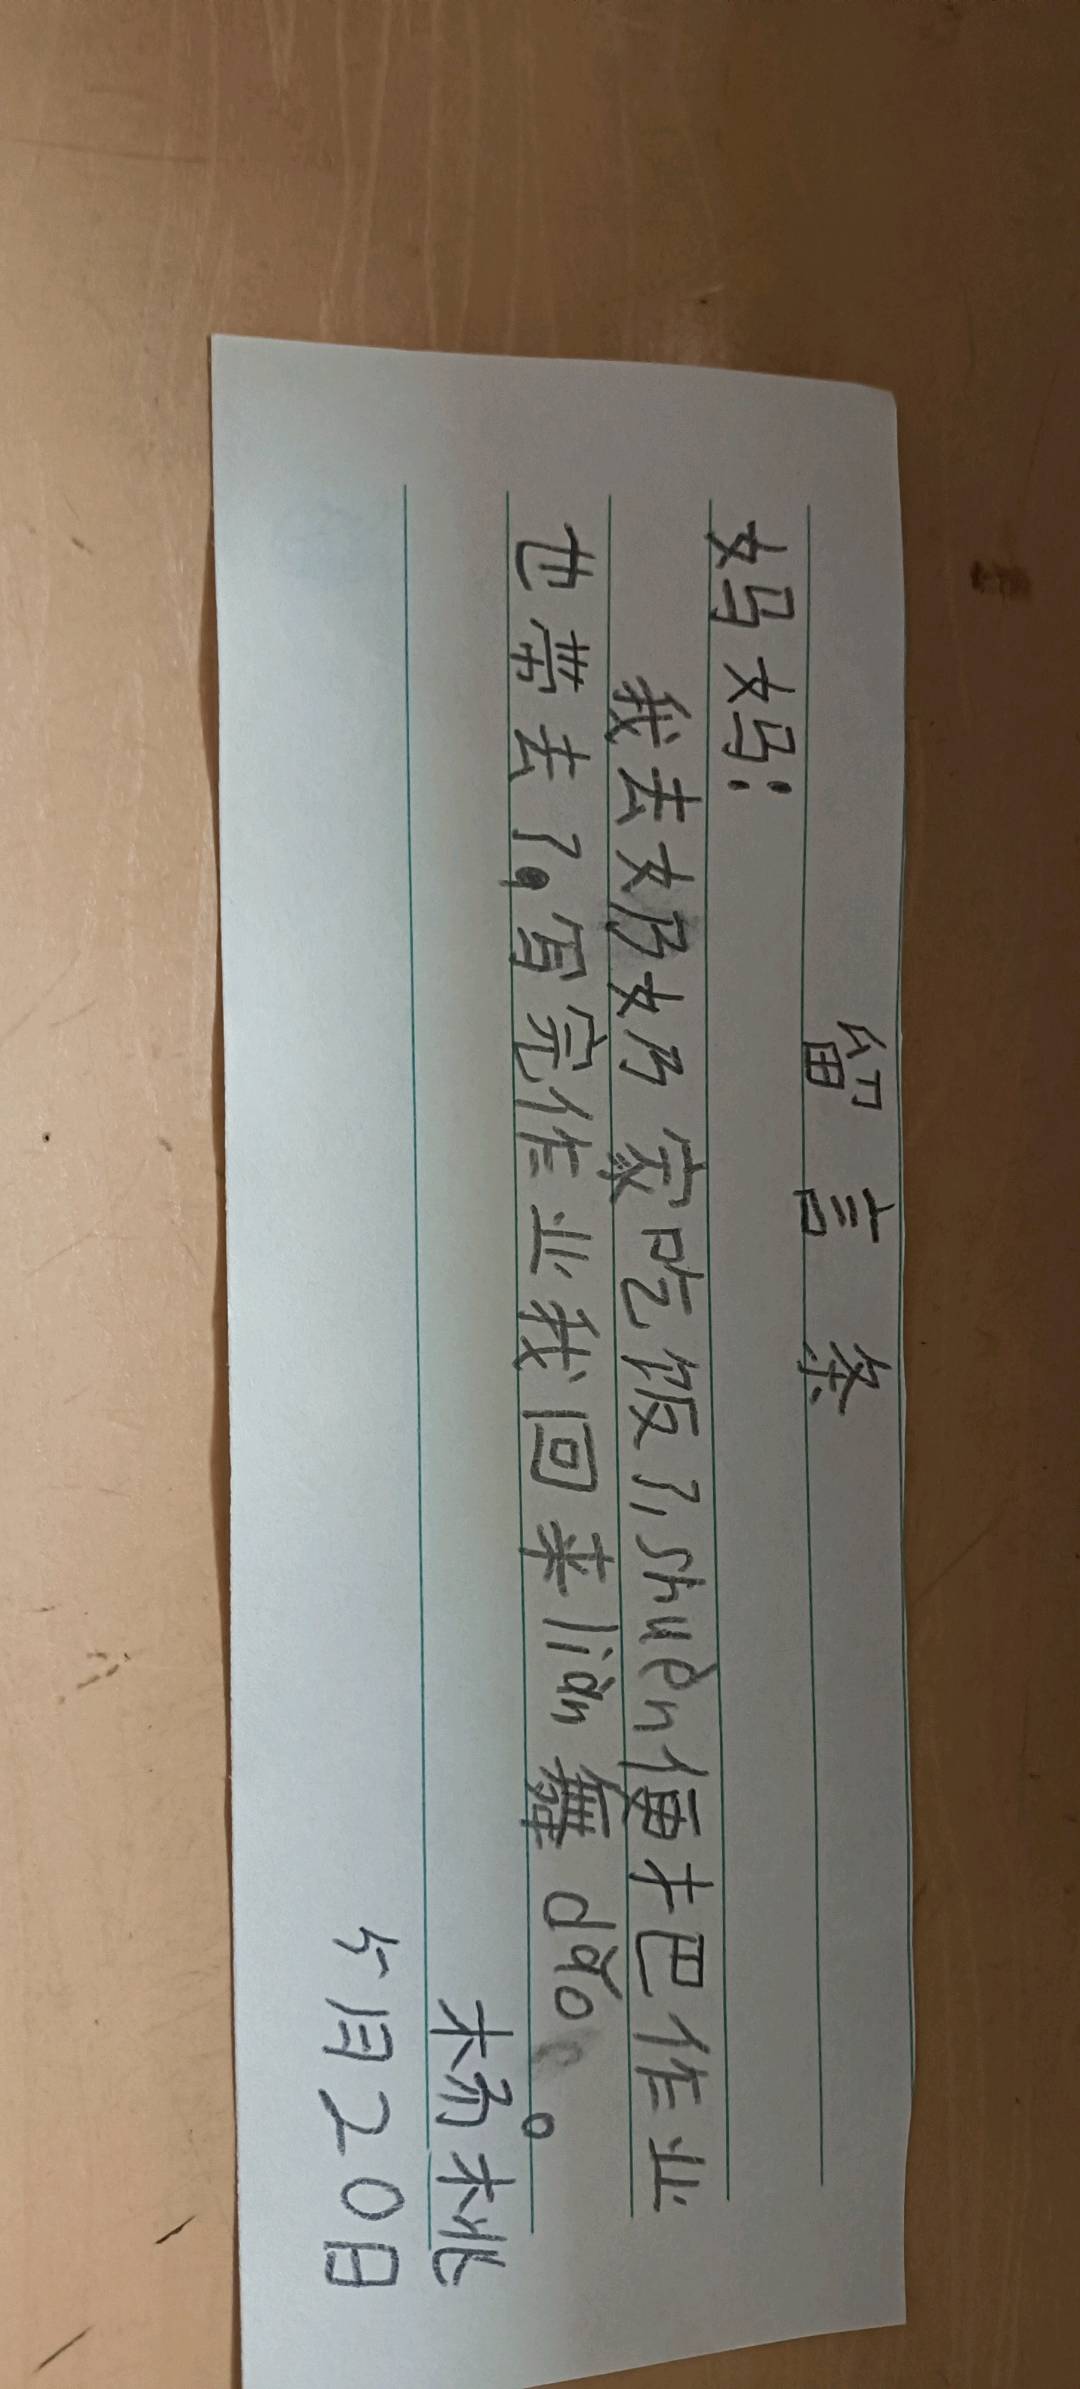 留言条
妈妈:
我去奶奶家吃饭了,shuèn便把作业
也带去了。写完作业我回来liàn舞dǎo。
杨桃
月20日